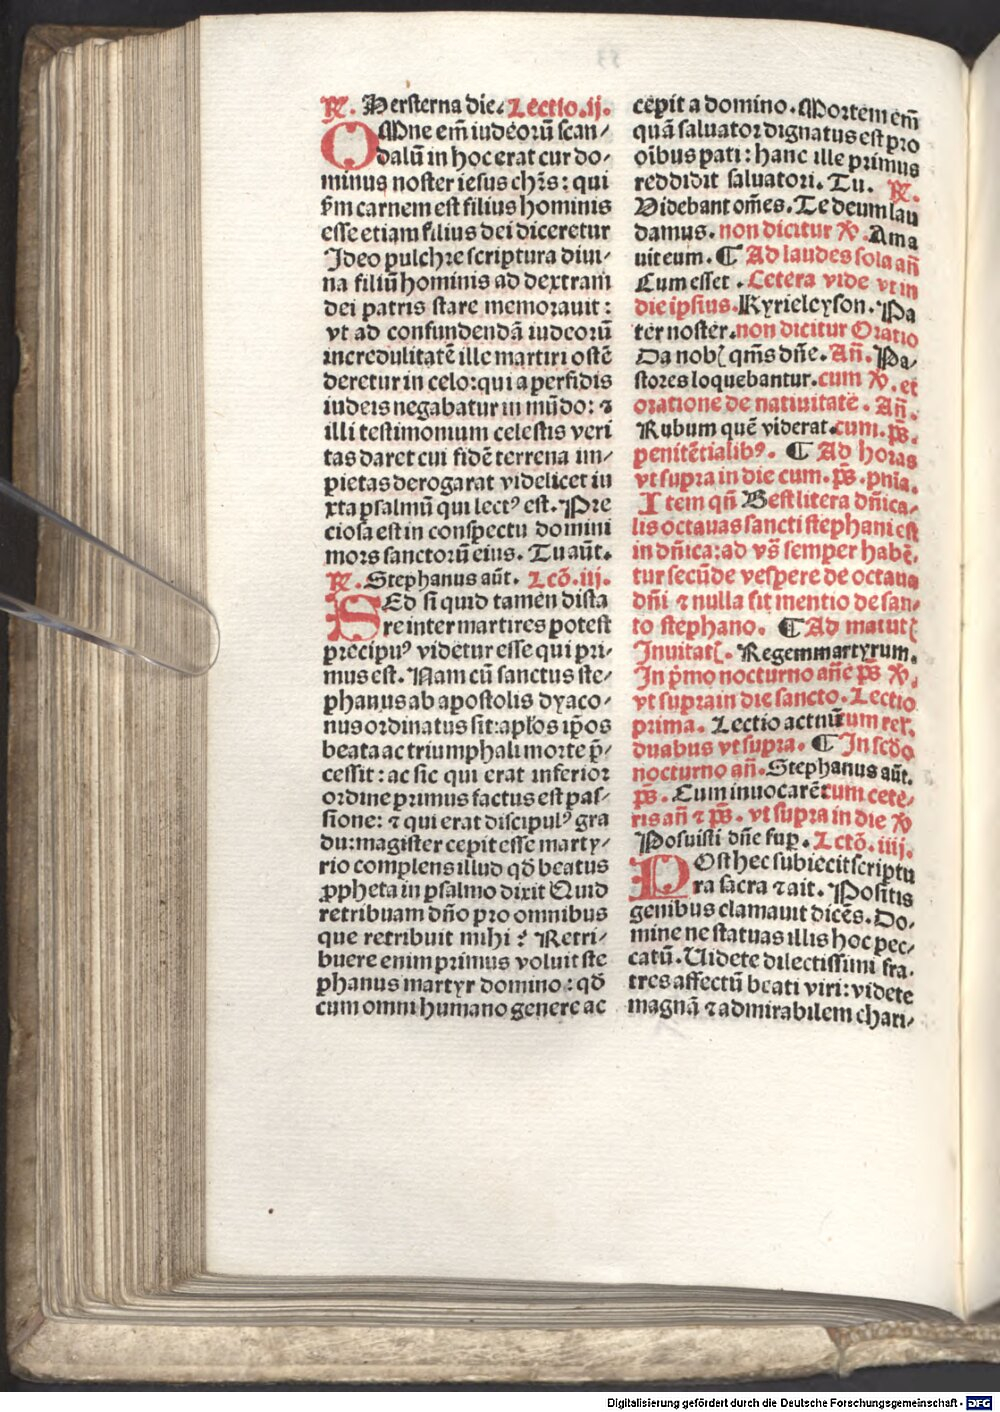 ℟. Hersterna die. Lectio.ij.
OMne em̄ iudeorū scan/
dalū in hoc erat cur do/
minus noster iesus chr̄s: qui
s̄m carnem est filius hominis
esse etiam filius dei diceretur
Ideo pulchre scriptura diui/
na filiū hominis ad dextram
dei patris stare memorauit:
vt ad confundendā iudeorū
incredulitatē ille martiri ostē
deretur in celo: qui a perfidis
iudeis negabatur in mūdo: ⁊
illi testimonium celestis veri
tas daret cui fidē terrena im/
pietas derogarat videlicet iu
xta psalmū qui lectꝰ est. Pre
ciosa est in conspectu domini
mors sanctorū eius. Tu aūt.
℟. Stephanus aūt. Lcō.iij.
SEd si quid tamen dista
re inter martires potest
precipuꝰ videtur esse qui pri/
mus est. Nam cū sanctus ste/
phanus ab apostolis dyaco/
nus ordinatus sit: apl̄os ip̄os
beata ac triumphali morte p̄/
cessit: ac sic qui erat inferior
ordine primus factus est pas/
sione: ⁊ qui erat discipulꝰ gra
du: magister cepit esse marty/
rio complens illud qd̄ beatus
ꝓpheta in psalmo dixit Quid
retribuam dn̄o pro omnibus
que retribuit mihi? Retri/
buere enim primus voluit ste
phanus martyr domino: qd̄
cum omni humano genere ac
cepit a domino. Mortem em̄
quā saluator dignatus est pro
oībus pati: hanc ille primus
reddidit saluatori. Tu. ℟.
Videbant om̄es. Te deum lau
damus. non dicitur ℣. Ama
uit eum. ¶ Ad laudes sola añ
Cum esset. Cetera vide vt in
die ipsius. Kyrieleyson. Pa
ter noster. non dicitur Oratio
Da nobꝭ qm̄s dn̄e. Añ. Pa/
stores loquebantur. cum ℣. et
oratione de natiuitate. Añ.
Rubum quē viderat. cum. ps̄.
penitētialibꝰ. ¶ Ad horas
vt supra in die cum. ps̄. pnīa.
Item qn̄ B est litera dn̄ica/
lis octauas sancti stephani est
in dn̄ica: ad vs̄ semper habē/
tur secūde vespere de octaua
dn̄i ⁊ nulla fit mentio de san/
to stephano. ¶ Ad matutꝭ
Inuitatꝭ. Regem martyrum.
In p̄mo nocturno añe ps̄ ℣.
vt supra in die sancto. Lectio
prima. Lectio actuū cum rel.
duabus vt supra. ¶ In scd̄o
nocturno añ. Stephanus aūt.
ps̄. Cum inuocarē cum cete/
ris añ ⁊ ps̄. vt supra in die ℣
Posuisti dn̄e sup. Lctō.iiij.
POst hec subiecit scriptu
ra sacra ⁊ ait. Positis
genibus clamauit dicēs. Do/
mine ne statuas illis hoc pec/
catū. Uidete dilectissimi fra/
tres affectū beati viri: videte
magnā ⁊ admirabilem chari/
Digitalisierung gefördert durch die Deutsche Forschungsgemeinschaft - DFG